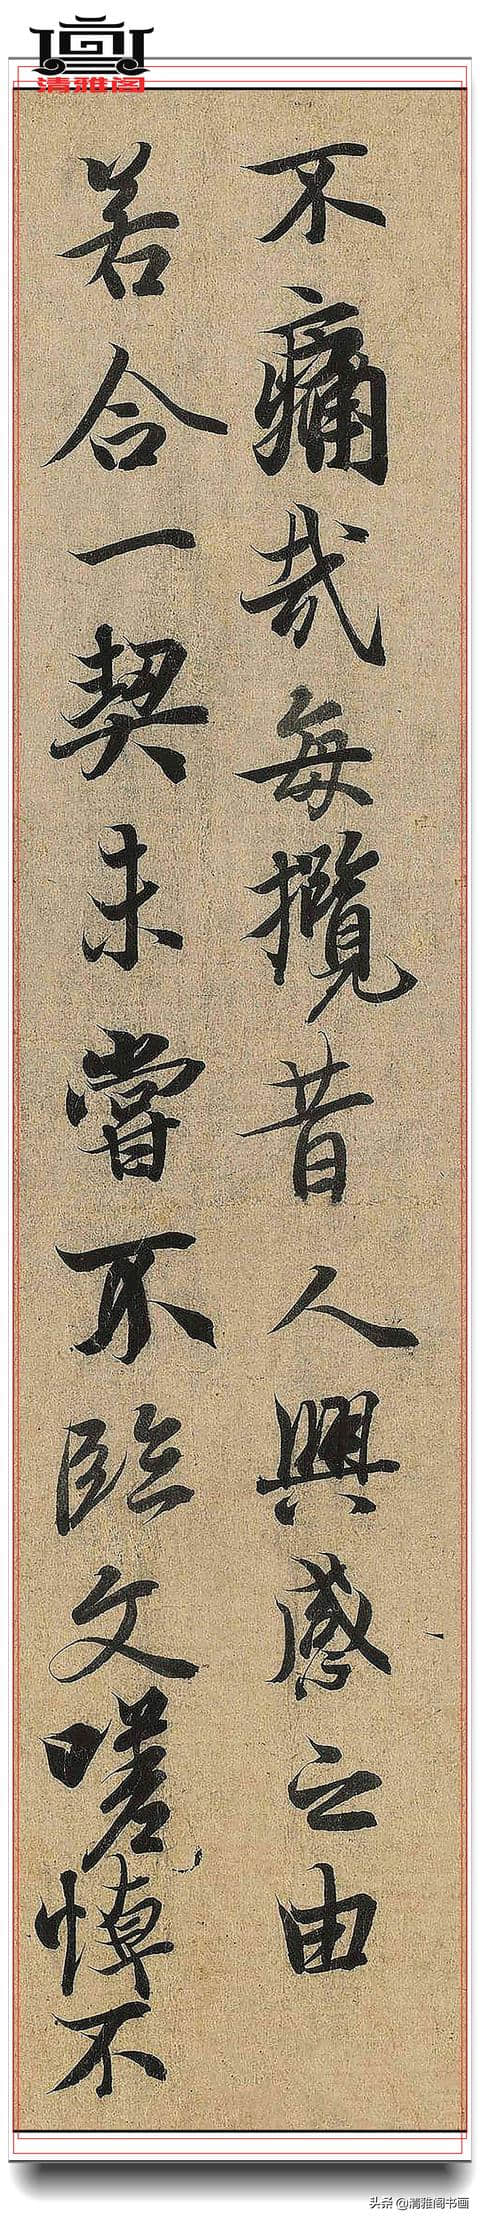 清雅阁
不痛哉每攬昔人興感之由
若合一契未嘗不臨文嗟悼不
头条 @清雅阁书画